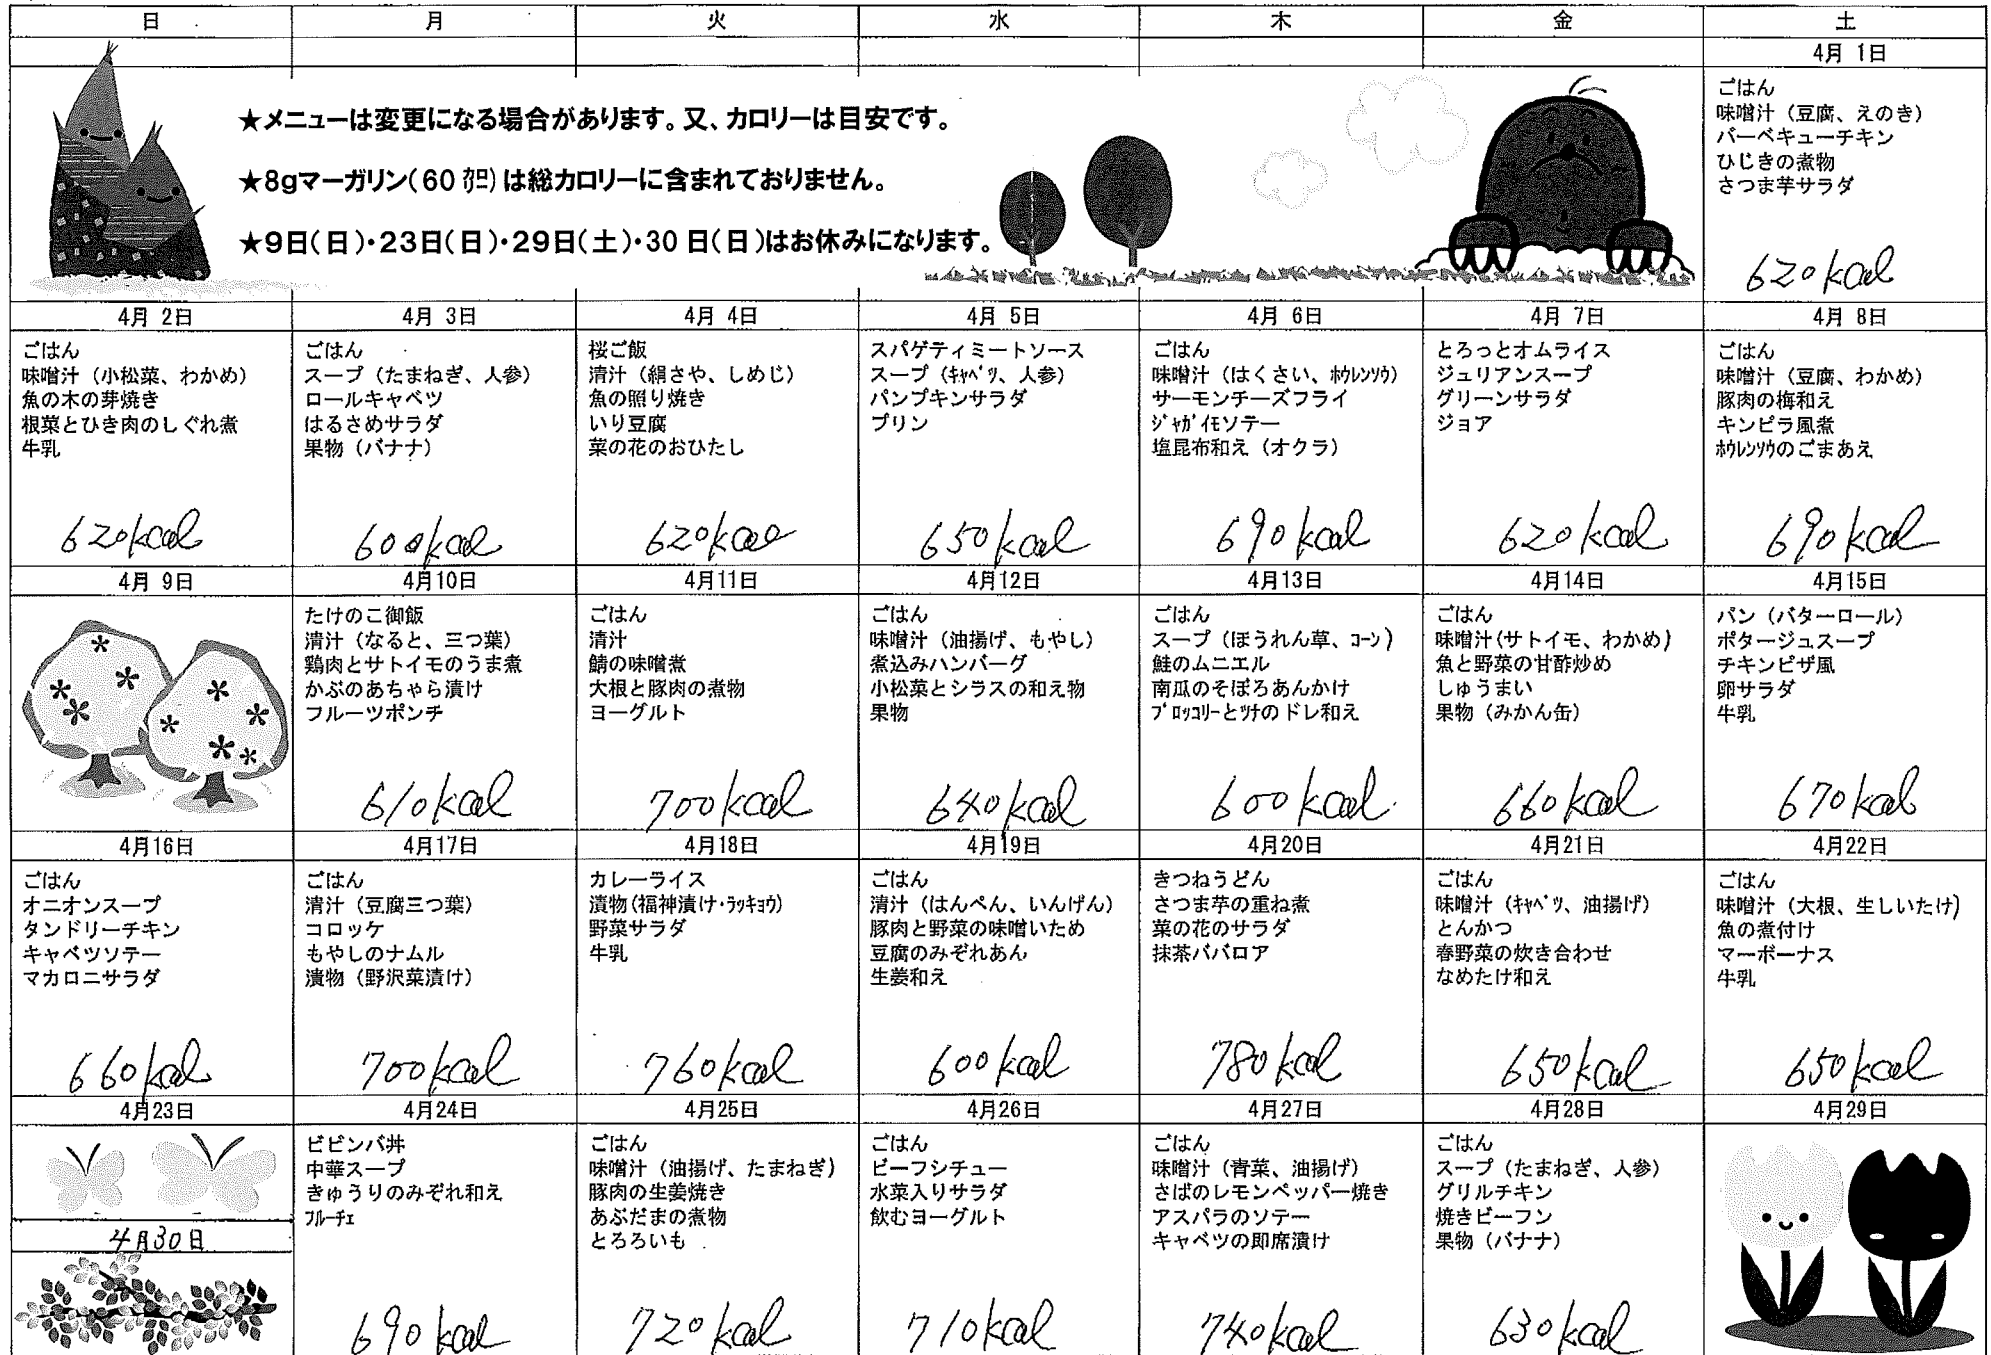 日 月 火 水 木 金 土
4月 1日
★メニューは変更になる場合があります。又、カロリーは目安です。
★8gマーガリン(60㌍)は総カロリーに含まれておりません。
★9日(日)・23日(日)・29日(土)・30日(日)はお休みになります。
ごはん
味噌汁（豆腐、えのき）
バーベキューチキン
ひじきの煮物
さつま芋サラダ
620kcal
4月 2日
ごはん
味噌汁（小松菜、わかめ）
魚の木の芽焼き
根菜とひき肉のしぐれ煮
牛乳
620kcal
4月 3日
ごはん
スープ（たまねぎ、人参）
ロールキャベツ
はるさめサラダ
果物（バナナ）
600kcal
4月 4日
桜ご飯
清汁（絹さや、しめじ）
魚の照り焼き
いり豆腐
菜の花のおひたし
620kcal
4月 5日
スパゲティミートソース
スープ（ｷｬﾍﾞﾂ、人参）
パンプキンサラダ
プリン
650kcal
4月 6日
ごはん
味噌汁（はくさい、ﾎｳﾚﾝｿｳ）
サーモンチーズフライ
ｼﾞｬｶﾞｲﾓソテー
塩昆布和え（オクラ）
690kcal
4月 7日
とろっとオムライス
ジュリアンスープ
グリーンサラダ
ジョア
620kcal
4月 8日
ごはん
味噌汁（豆腐、わかめ）
豚肉の梅和え
キンピラ風煮
ﾎｳﾚﾝｿｳのごまあえ
690kcal
4月 9日
4月10日
たけのこ御飯
清汁（なると、三つ葉）
鶏肉とサトイモのうま煮
かぶのあちゃら漬け
フルーツポンチ
610kcal
4月11日
ごはん
清汁
鯖の味噌煮
大根と豚肉の煮物
ヨーグルト
700kcal
4月12日
ごはん
味噌汁（油揚げ、もやし）
煮込みハンバーグ
小松菜とシラスの和え物
果物
640kcal
4月13日
ごはん
スープ（ほうれん草、ｺｰﾝ）
鮭のムニエル
南瓜のそぼろあんかけ
ﾌﾞﾛｯｺﾘｰとﾂﾅのドレ和え
600kcal
4月14日
ごはん
味噌汁(サトイモ、わかめ)
魚と野菜の甘酢炒め
しゅうまい
果物（みかん缶）
660kcal
4月15日
パン（バターロール）
ポタージュスープ
チキンピザ風
卵サラダ
牛乳
670kcal
4月16日
ごはん
オニオンスープ
タンドリーチキン
キャベツソテー
マカロニサラダ
660kcal
4月17日
ごはん
清汁（豆腐三つ葉）
コロッケ
もやしのナムル
漬物（野沢菜漬け）
700kcal
4月18日
カレーライス
漬物(福神漬け・ﾗｯｷｮｳ)
野菜サラダ
牛乳
760kcal
4月19日
ごはん
清汁（はんぺん、いんげん）
豚肉と野菜の味噌いため
豆腐のみぞれあん
生姜和え
600kcal
4月20日
きつねうどん
さつま芋の重ね煮
菜の花のサラダ
抹茶ババロア
780kcal
4月21日
ごはん
味噌汁（ｷｬﾍﾞﾂ、油揚げ）
とんかつ
春野菜の炊き合わせ
なめたけ和え
650kcal
4月22日
ごはん
味噌汁（大根、生しいたけ）
魚の煮付け
マーボーナス
牛乳
650kcal
4月23日
4月30日
4月24日
ビビンバ丼
中華スープ
きゅうりのみぞれ和え
ﾌﾙｰﾁｪ
690kcal
4月25日
ごはん
味噌汁（油揚げ、たまねぎ）
豚肉の生姜焼き
あぶだまの煮物
とろろいも
720kcal
4月26日
ごはん
ビーフシチュー
水菜入りサラダ
飲むヨーグルト
710kcal
4月27日
ごはん
味噌汁（青菜、油揚げ）
さばのレモンペッパー焼き
アスパラのソテー
キャベツの即席漬け
740kcal
4月28日
ごはん
スープ（たまねぎ、人参）
グリルチキン
焼きビーフン
果物（バナナ）
630kcal
4月29日